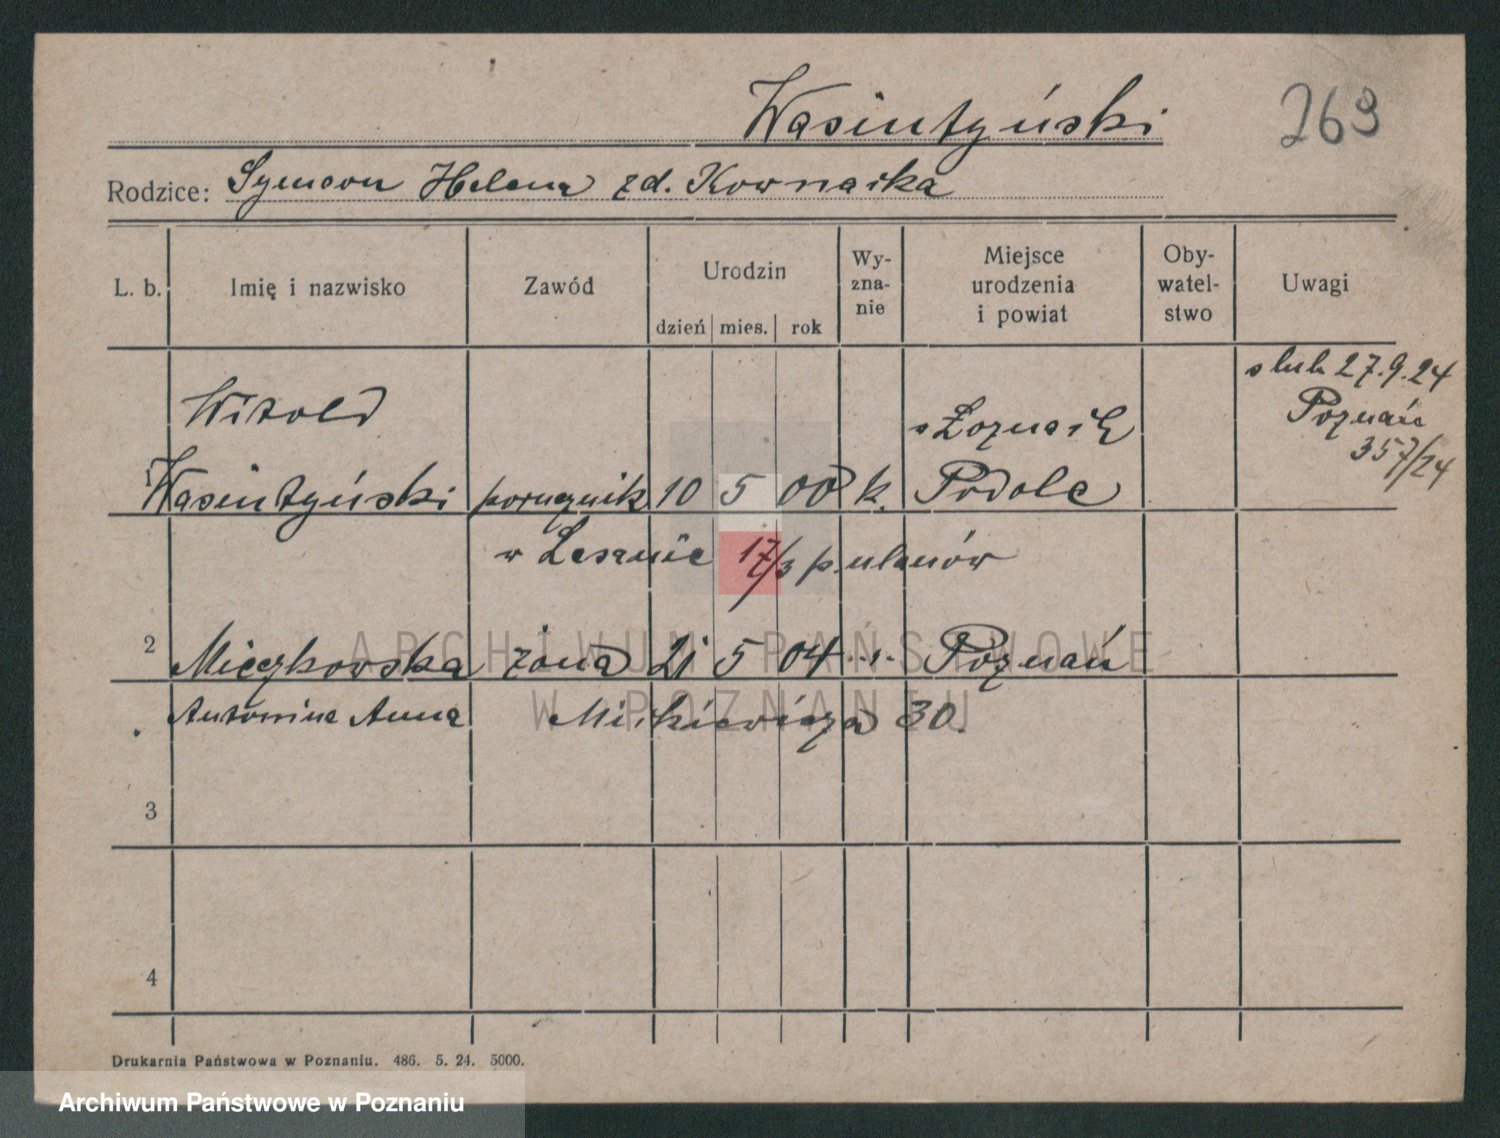 Wasiutyński 269
Rodzice: Symeon Helena zd. Kownacka
L. b. Imię i nazwisko Zawód Urodzin dzień mies. rok Wy-zna-nie Miejsce urodzenia i powiat Oby-watel-stwo Uwagi
ślub 27.9.24
Poznań
357/24
Witold
Wasiutyński porucznik 10 5 00 k. Podole
w Lesznie 17/3 p. ułanów
2 Mieczkowska żona 21 5 04 Poznań
Antonina Anna Mickiewicza 30.
3
4
Drukarnia Państwowa w Poznaniu. 486. 5. 24. 5000.
ARCHIWUM PAŃSTWOWE
W POZNANIU
Archiwum Państwowe w Poznaniu